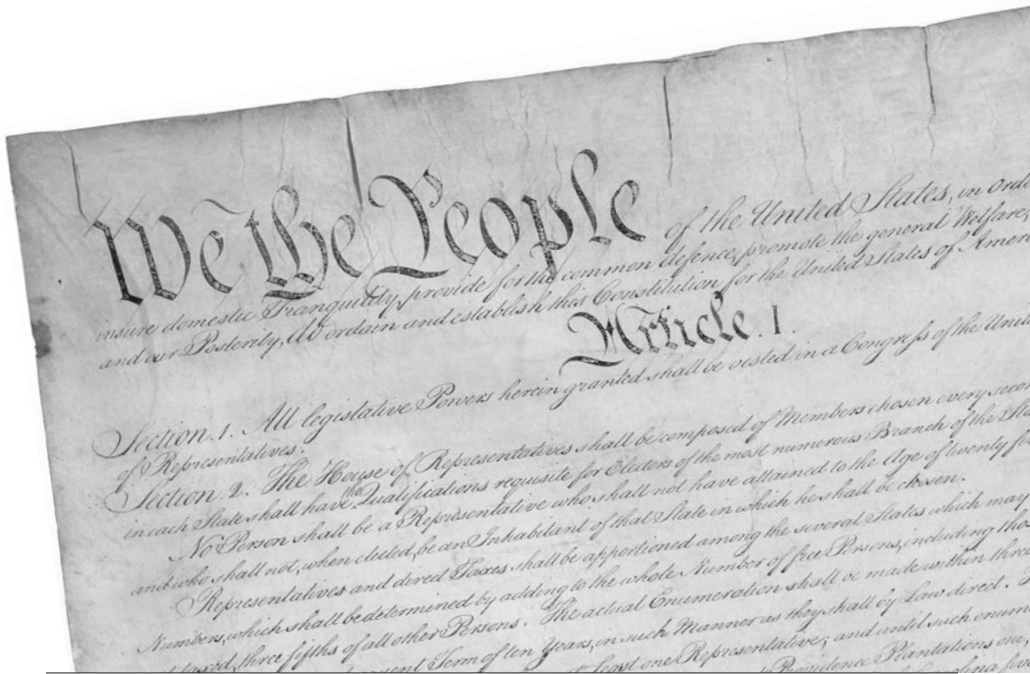 We the People of the United States, in Orde
insure domestic Tranquility, provide for the common defence, promote the general Welfare,
and our Posterity, do ordain and establish this Constitution for the United States of Ameri
Article. I.
Section. 1. All legislative Powers herein granted shall be vested in a Congress of the Unit
of Representatives.
Section. 2. The House of Representatives shall be composed of Members chosen every secon
in each State shall have the Qualifications requisite for Electors of the most numerous Branch of the Sta
No Person shall be a Representative who shall not have attained to the Age of twenty fi
and who shall not, when elected, be an Inhabitant of that State in which he shall be chosen.
Representatives and direct Taxes shall be apportioned among the several States which may
Numbers, which shall be determined by adding to the whole Number of free Persons, including tho
taxed, three fifths of all other Persons. The actual Enumeration shall be made within thre
Term of ten Years, in such Manner as they shall by Law direct.
least one Representative; and until such enum
Providence Plantations one